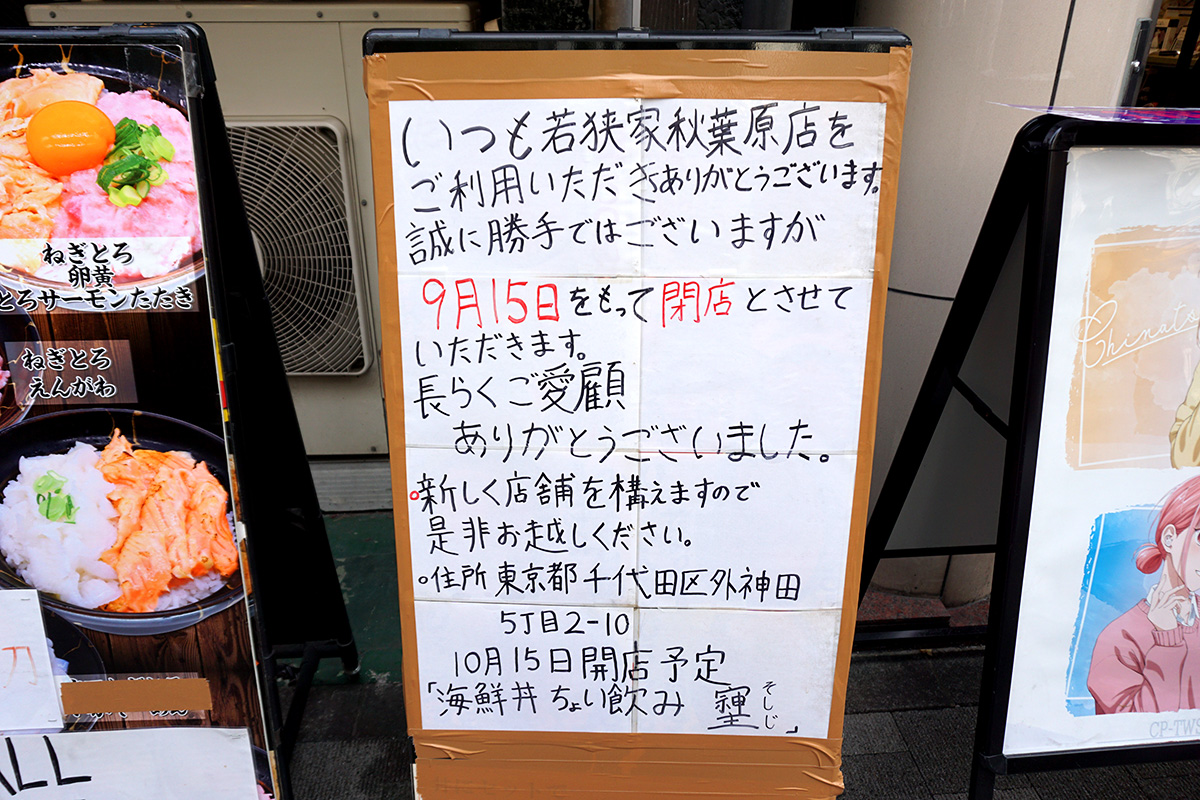 いつも若狭家秋葉原店を
ご利用いただきありがとうございます。
誠に勝手ではございますが
9月15日をもって閉店とさせて
いただきます。
長らくご愛顧
ありがとうございました。
○新しく店舗を構えますので
是非お越しください。
○住所 東京都千代田区外神田
5丁目2-10
10月15日開店予定
「海鮮丼 ちょい飲み
そしじ」
ねぎとろ
卵黄
とろサーモンたたき
ねぎとろ
えんがわ
ALL
Chinato
CP-TWS